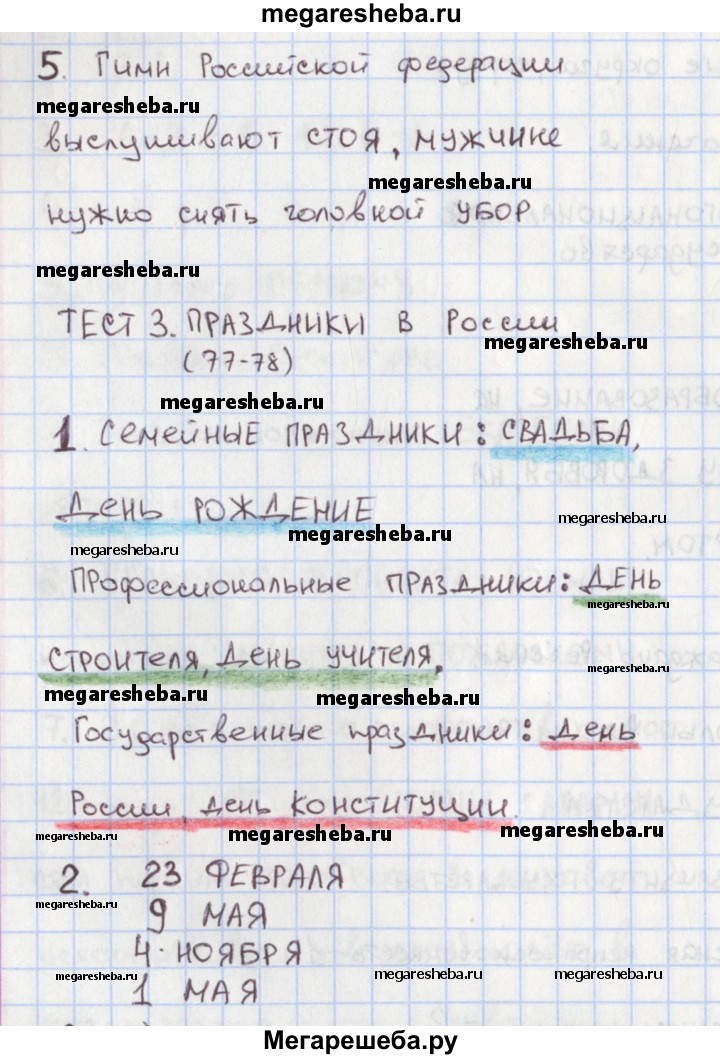 megaresheba.ru
5. Гимн Российской федерации
megaresheba.ru
выслушивают стоя, мужчине
megaresheba.ru
нужно снять головной убор
megaresheba.ru
ТЕСТ 3. ПРАЗДНИКИ В России
megaresheba.ru
(77-78)
megaresheba.ru
megaresheba.ru
1. СЕМЕЙНЫЕ ПРАЗДНИКИ: СВАДЬБА,
ДЕНЬ РОЖДЕНИЕ
megaresheba.ru
megaresheba.ru
megaresheba.ru
ПРОФЕССИОНАЛЬНЫЕ ПРАЗДНИКИ: ДЕНЬ
megaresheba.ru
СТРОИТЕЛЯ, ДЕНЬ УЧИТЕЛЯ,
megaresheba.ru
megaresheba.ru
megaresheba.ru
Государственные праздники: день
России, день конституции.
megaresheba.ru
megaresheba.ru
megaresheba.ru
2. 23 ФЕВРАЛЯ
megaresheba.ru
9 МАЯ
4 НОЯБРЯ
megaresheba.ru
megaresheba.ru
megaresheba.ru
1 МАЯ
Мегарешеба.ру